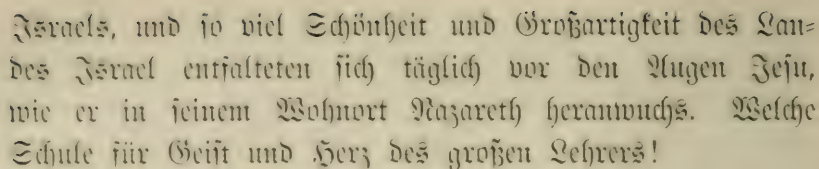 Israels, und so viel Schönheit und Großartigkeit des Lan=
des Israel entfalteten sich täglich vor den Augen Jesu,
wie er in seinem Wohnort Nazareth heranwuchs. Welche
Schule für Geist und Herz des großen Lehrers!